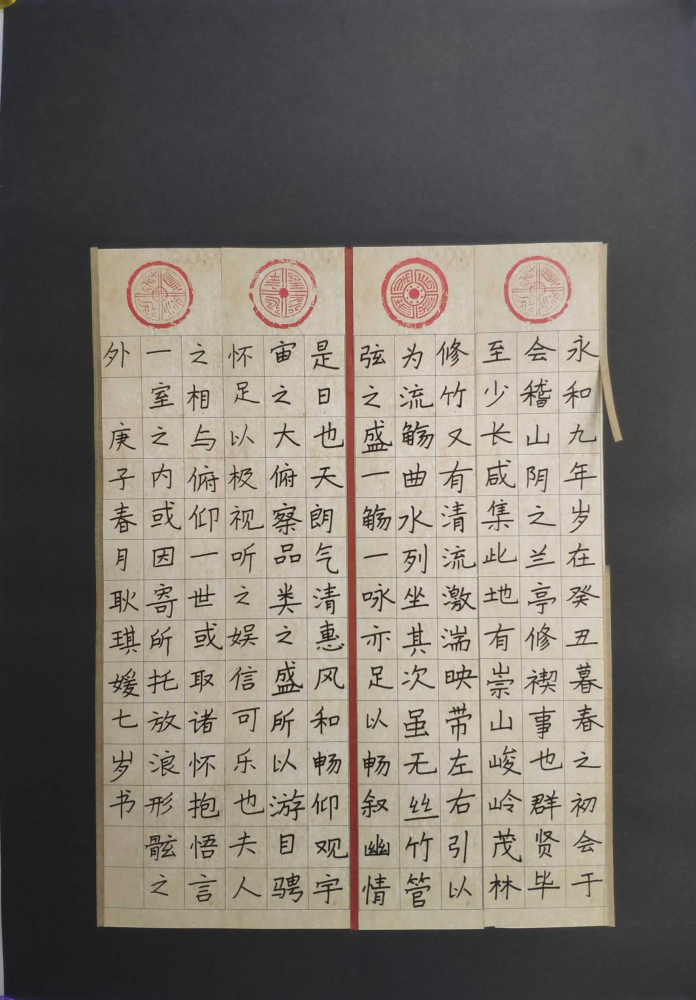 永和九年岁在癸丑暮春之初会于
会稽山阴之兰亭修禊事也群贤毕
至少长咸集此地有崇山峻岭茂林
修竹又有清流激湍映带左右引以
为流觞曲水列坐其次虽无丝竹管
弦之盛一觞一咏亦足以畅叙幽情
是日也天朗气清惠风和畅仰观宇
宙之大俯察品类之盛所以游目骋
怀足以极视听之娱信可乐也夫人
之相与俯仰一世或取诸怀抱悟言
一室之内或因寄所托放浪形骸之
外 庚子春月耿琪媛七岁书